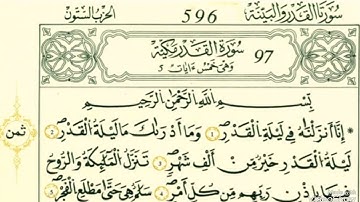 سورتا القدر والبينة 596 الحزب الستون
سورة القدر مكية 97
وهي خمس ءايات 5
بسم الله الرحمن الرحيم
إنا أنزلناه في ليلة القدر 1 وما أدراك ما ليلة القدر 2
ثمن
ليلة القدر خير من ألف شهر 3 تنزل الملائكة والروح
فيها بإذن ربهم من كل أمر 4 سلام هي حتى مطلع الفجر 5